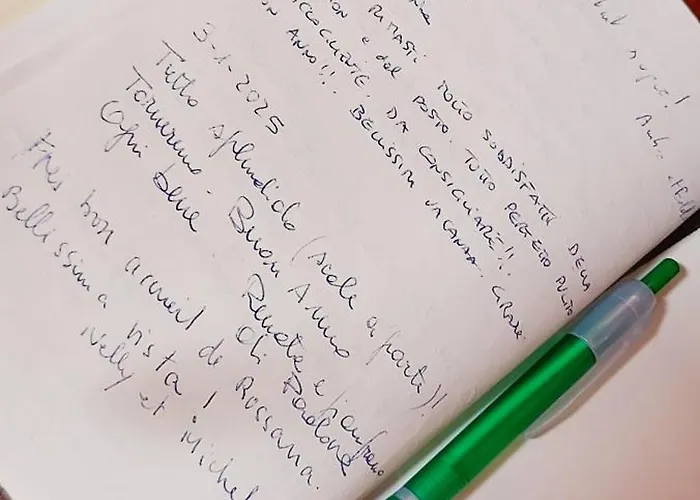 super!
RIMASTI MOLTO SODDISFATTI DELLA
e del POSTO. TUTTO PERFETTO PULITO
DA CONSIGLIARE!!.
ANNO!!! BELLISSIMA VACANZA. GRAZIE
3-1-2025
Tutto splendido (sole a parte)!
Torneremo. Buon Anno
Ogni bene Renata e
di Padova
Très bon accueil de Rossana.
Bellissima vista!
Nelly et Michel